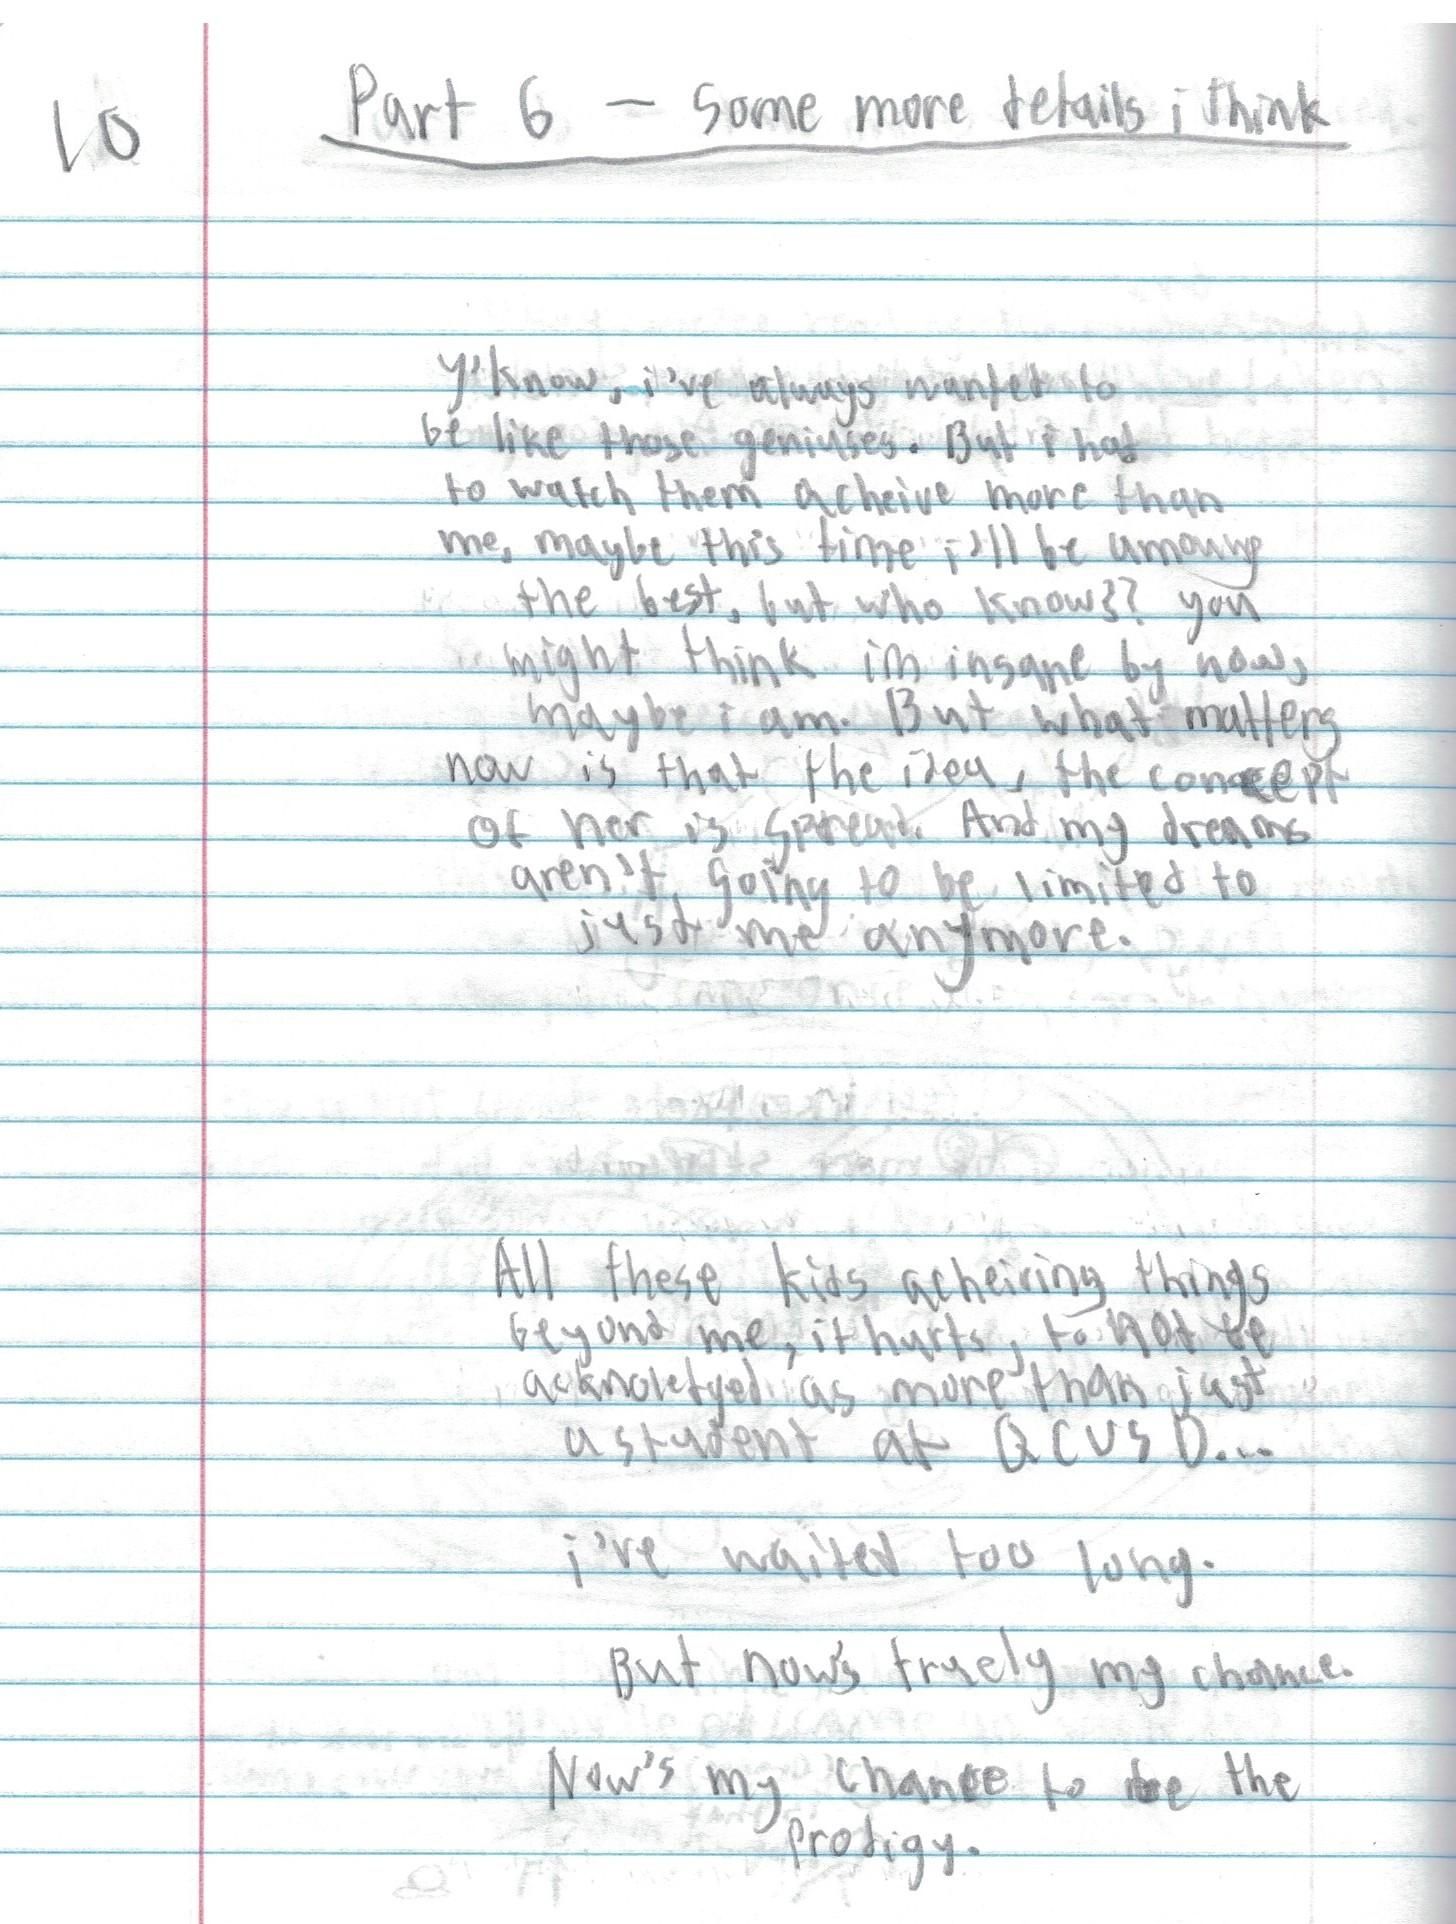 10
Part 6 - Some more details i think
Y'know, i've always wanted to
be like those geniuses. But i had
to watch them acheive more than
me, maybe this time i'll be amoung
the best, but who knows?? you
might think im insane by now,
maybe i am. But what matters
now is that the idea, the concept
of her is spread. And my dreams
aren't going to be limited to
just me anymore.
All these kids acheiving things
beyond me, it hurts, to not be
acknoledged as more than just
a student at QCUSD...
i've waited too long.
But now's truely my chance.
Now's my chance to be the
prodigy.